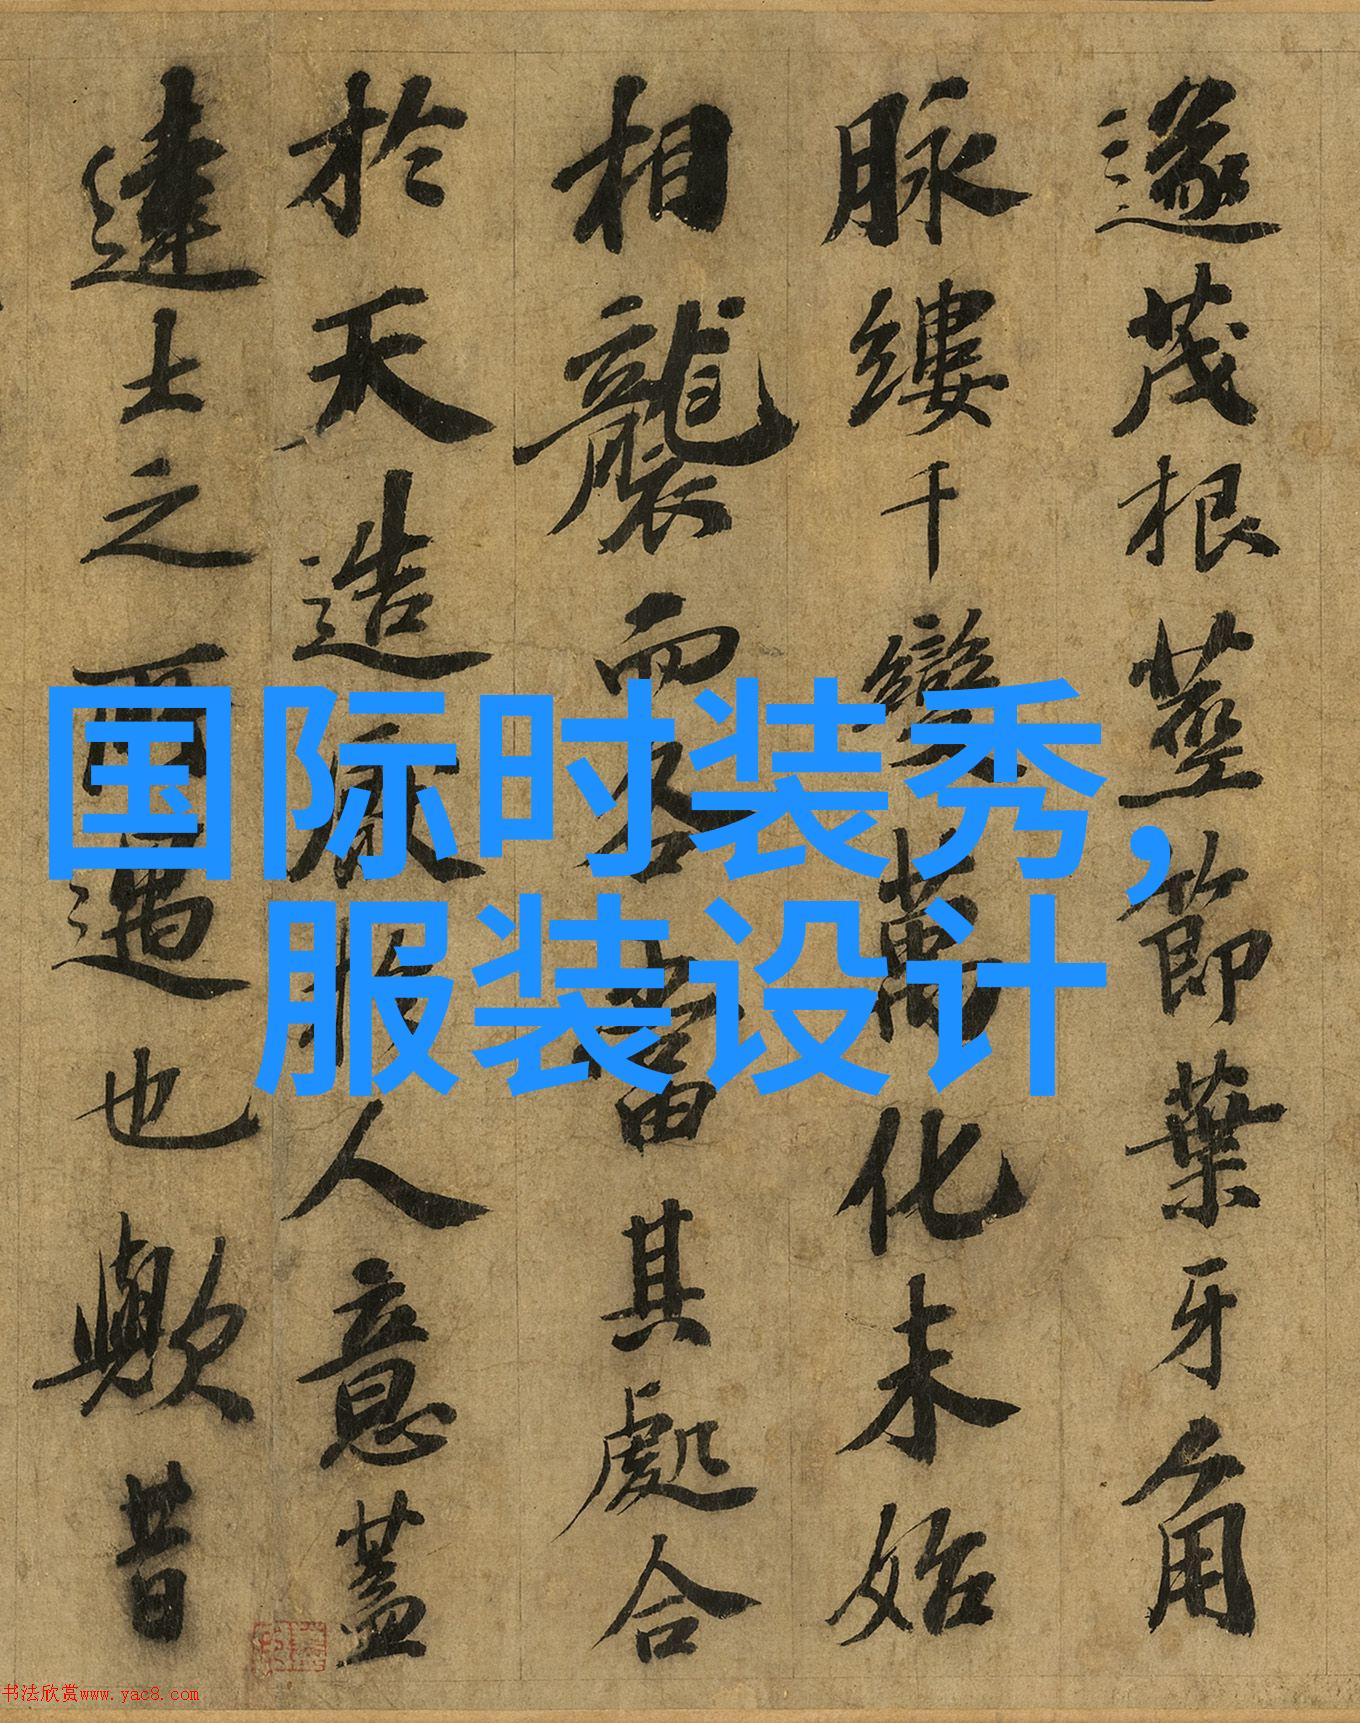 遂茂根莖節葉牙角
脉縷千變萬化未始
相襲而各當其處合
於天造厭於人意蓋
達士之所遇也歟昔
国际时装秀，
服装设计
书法欣赏www.yac8.com